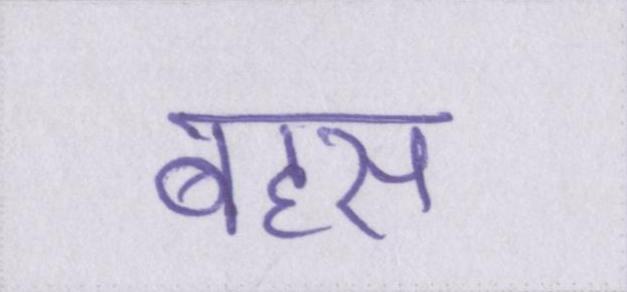 बहस